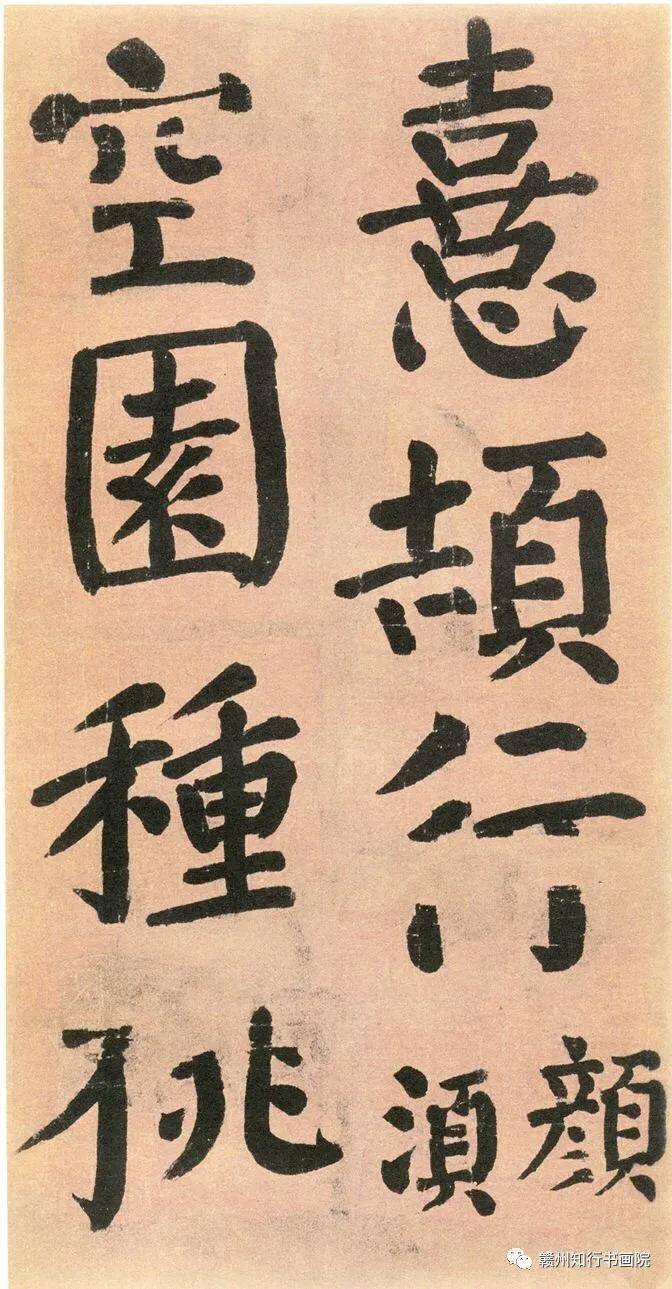 憙頡行顏
須
空園種桃
赣州知行书画院